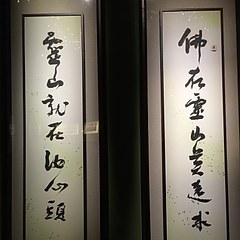 佛在靈山莫遠求
靈山就在汝心頭